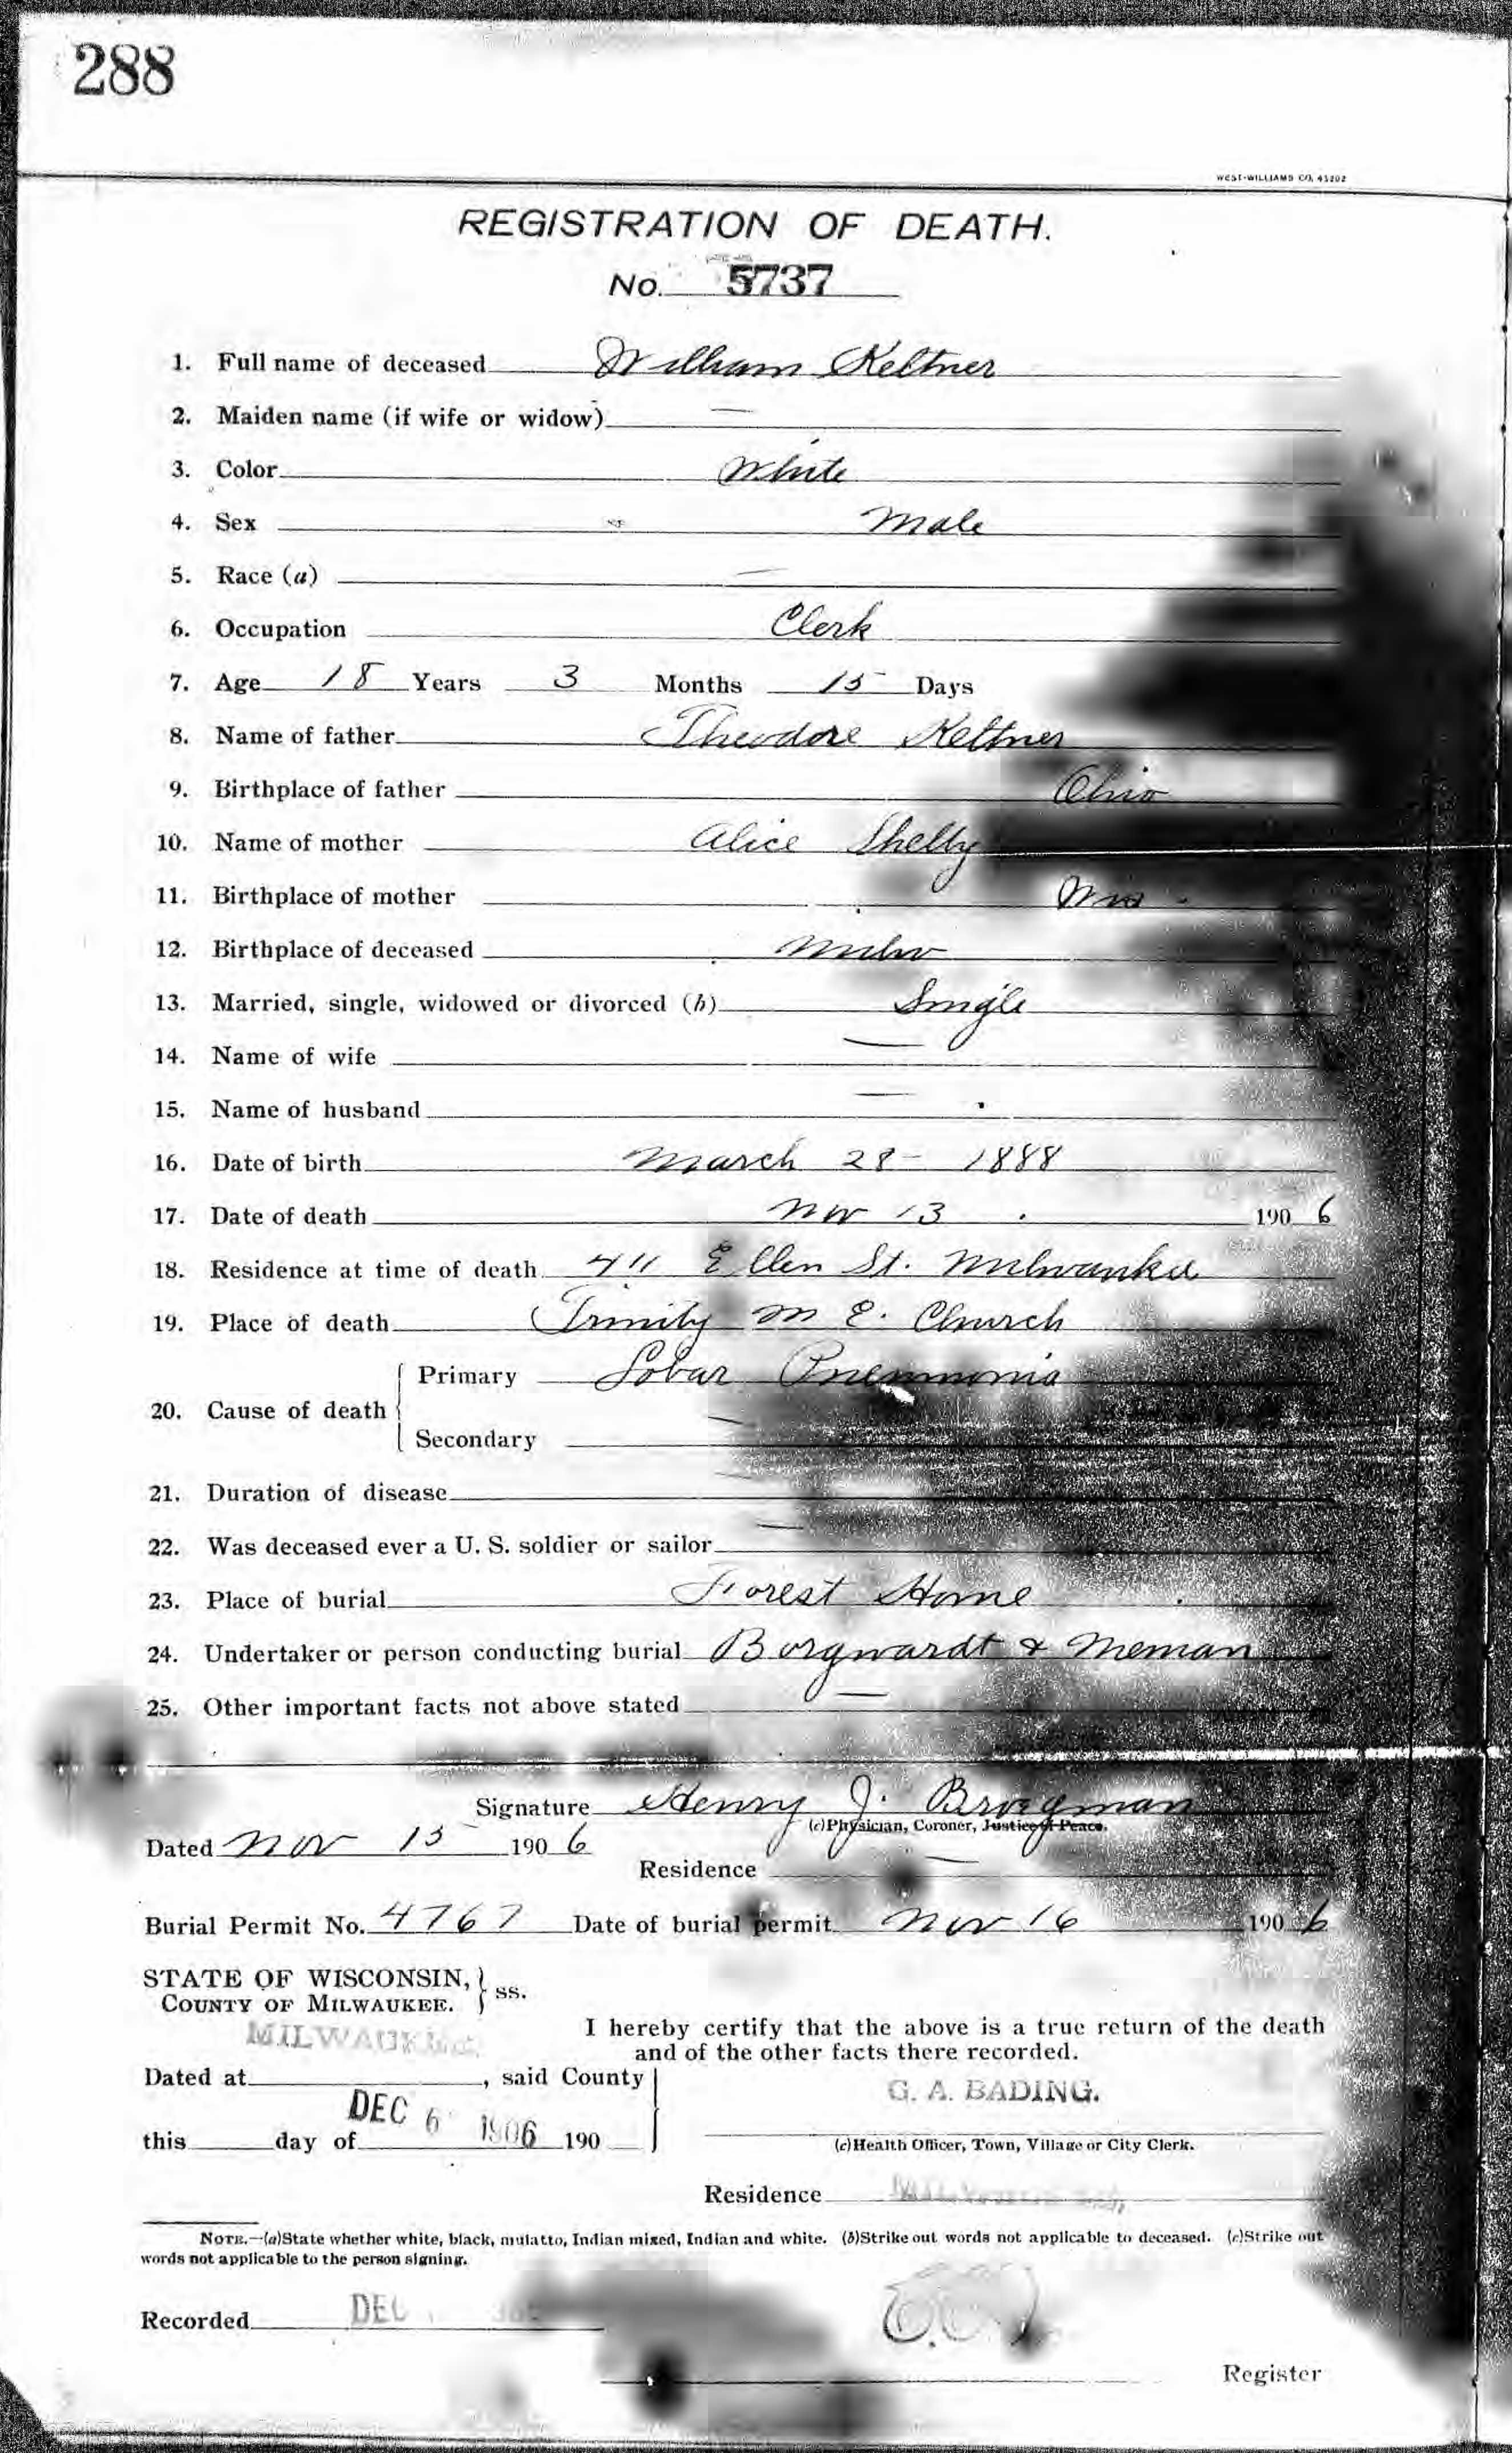 288
WEST-WILLIAMS CO. 41202
REGISTRATION OF DEATH.
No. 5737
1. Full name of deceased William Keltner
2. Maiden name (if wife or widow) —
3. Color White
4. Sex Male
5. Race (a) —
6. Occupation Clerk
7. Age 18 Years 3 Months 15 Days
8. Name of father Theodore Keltner
9. Birthplace of father Ohio
10. Name of mother Alice Shelby
11. Birthplace of mother Wis
12. Birthplace of deceased Milw
13. Married, single, widowed or divorced (b) Single
14. Name of wife —
15. Name of husband —
16. Date of birth March 28 - 1888
17. Date of death Nov 13 1906
18. Residence at time of death 411 Ellen St. Milwaukee
19. Place of death Trinity M E. Church
20. Cause of death { Primary Lobar Pneumonia
Secondary —
21. Duration of disease —
22. Was deceased ever a U. S. soldier or sailor —
23. Place of burial Forest Home
24. Undertaker or person conducting burial Borgwardt & Meman
25. Other important facts not above stated —
Signature Henry J.
(c)Physician, Coroner, Justice of Peace.
Dated Nov 15 1906
Residence —
Burial Permit No. 4767 Date of burial permit Nov 16 1906
STATE OF WISCONSIN, } ss.
COUNTY OF MILWAUKEE.
MILWAUKEE
I hereby certify that the above is a true return of the death
and of the other facts there recorded.
Dated at , said County
G. A. BADING.
DEC 6 1906
this day of 190
(c)Health Officer, Town, Village or City Clerk.
Residence
NOTE.—(a)State whether white, black, mulatto, Indian mixed, Indian and white. (b)Strike out words not applicable to deceased. (c)Strike out
words not applicable to the person signing.
Recorded DEC
Register